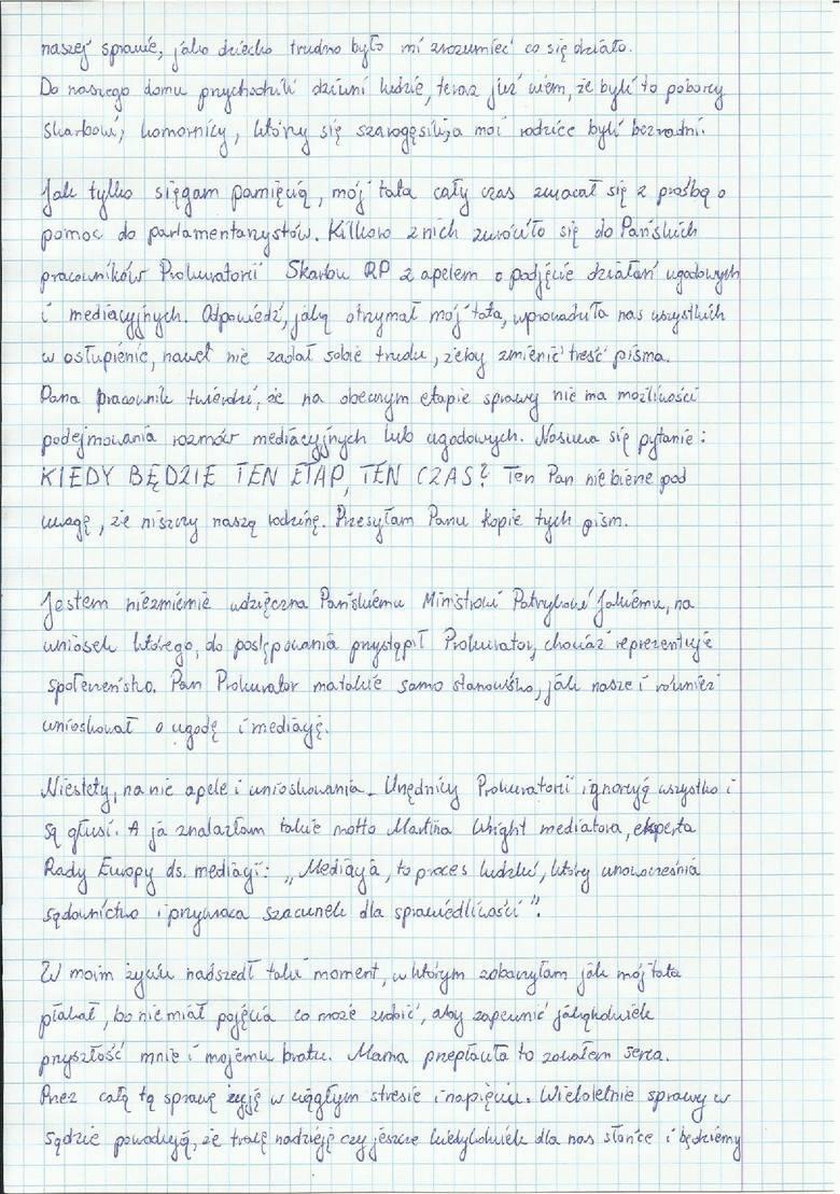 naszej sprawie, jako dziecko trudno było mi zrozumieć co się działo.
Do naszego domu przychodzili dziwni ludzie, teraz już wiem, że byli to poborcy
skarbowi, komornicy, którzy się szarogęsili, a moi rodzice byli bezradni.
Jak tylko sięgam pamięcią, mój tata cały czas zwracał się z prośbą o
pomoc do parlamentarzystów. Kilkoro z nich zwróciło się do Pańskich
pracowników Prokuratorii Skarbu RP z apelem o podjęcie działań ugodowych
i mediacyjnych. Odpowiedź, jaką otrzymał mój tata, wprowadziła nas wszystkich
w osłupienie, nawet nie zadał sobie trudu, żeby zmienić treść pisma.
Pana pracownik twierdzi, że na obecnym etapie sprawy nie ma możliwości
podejmowania rozmów mediacyjnych lub ugodowych. Nasuwa się pytanie:
KIEDY BĘDZIE TEN ETAP, TEN CZAS? Ten Pan nie bierze pod
uwagę, że niszczy naszą rodzinę. Przesyłam Panu kopie tych pism.
Jestem niezmiernie wdzięczna Pańskiemu Ministrowi Patrykowi Jakiemu, na
wniosek którego, do postępowania przystąpił Prokurator, chociaż reprezentuje
społeczeństwo. Pan Prokurator ma takie samo stanowisko, jak nasze i również
wnioskował o ugodę i mediację.
Niestety, na nic apele i wnioskowania. Urzędnicy Prokuratorii ignorują wszystko i
są głusi. A ja znalazłam takie motto Martina Wright mediatora, eksperta
Rady Europy ds. mediacji: „Mediacja, to proces ludzki, który unowocześnia
sądownictwo i przywraca szacunek dla sprawiedliwości".
W moim życiu nadszedł taki moment, w którym zobaczyłam jak mój tata
płakał, bo nie miał pojęcia co może zrobić, aby zapewnić jakąkolwiek
przyszłość mnie i mojemu bratu. Mama przepłaciła to zawałem serca.
Przez całą tą sprawę żyję w ciągłym stresie i napięciu. Wieloletnie sprawy w
sądzie powodują, że tracę nadzieję czy jeszcze kiedykolwiek dla nas słońce i będziemy